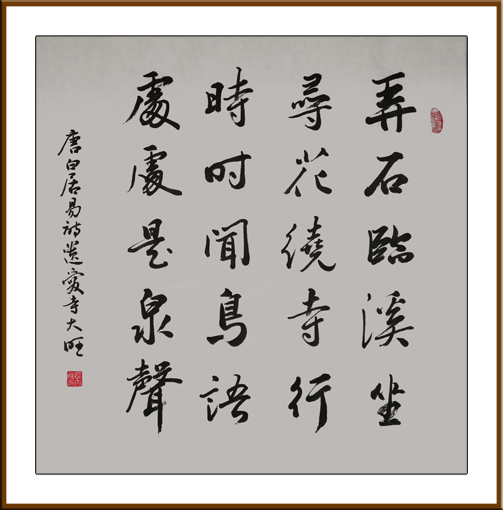 弄石臨溪坐
尋花繞寺行
時时聞鳥語
處處是泉聲
唐白居易詩遺愛寺大旺